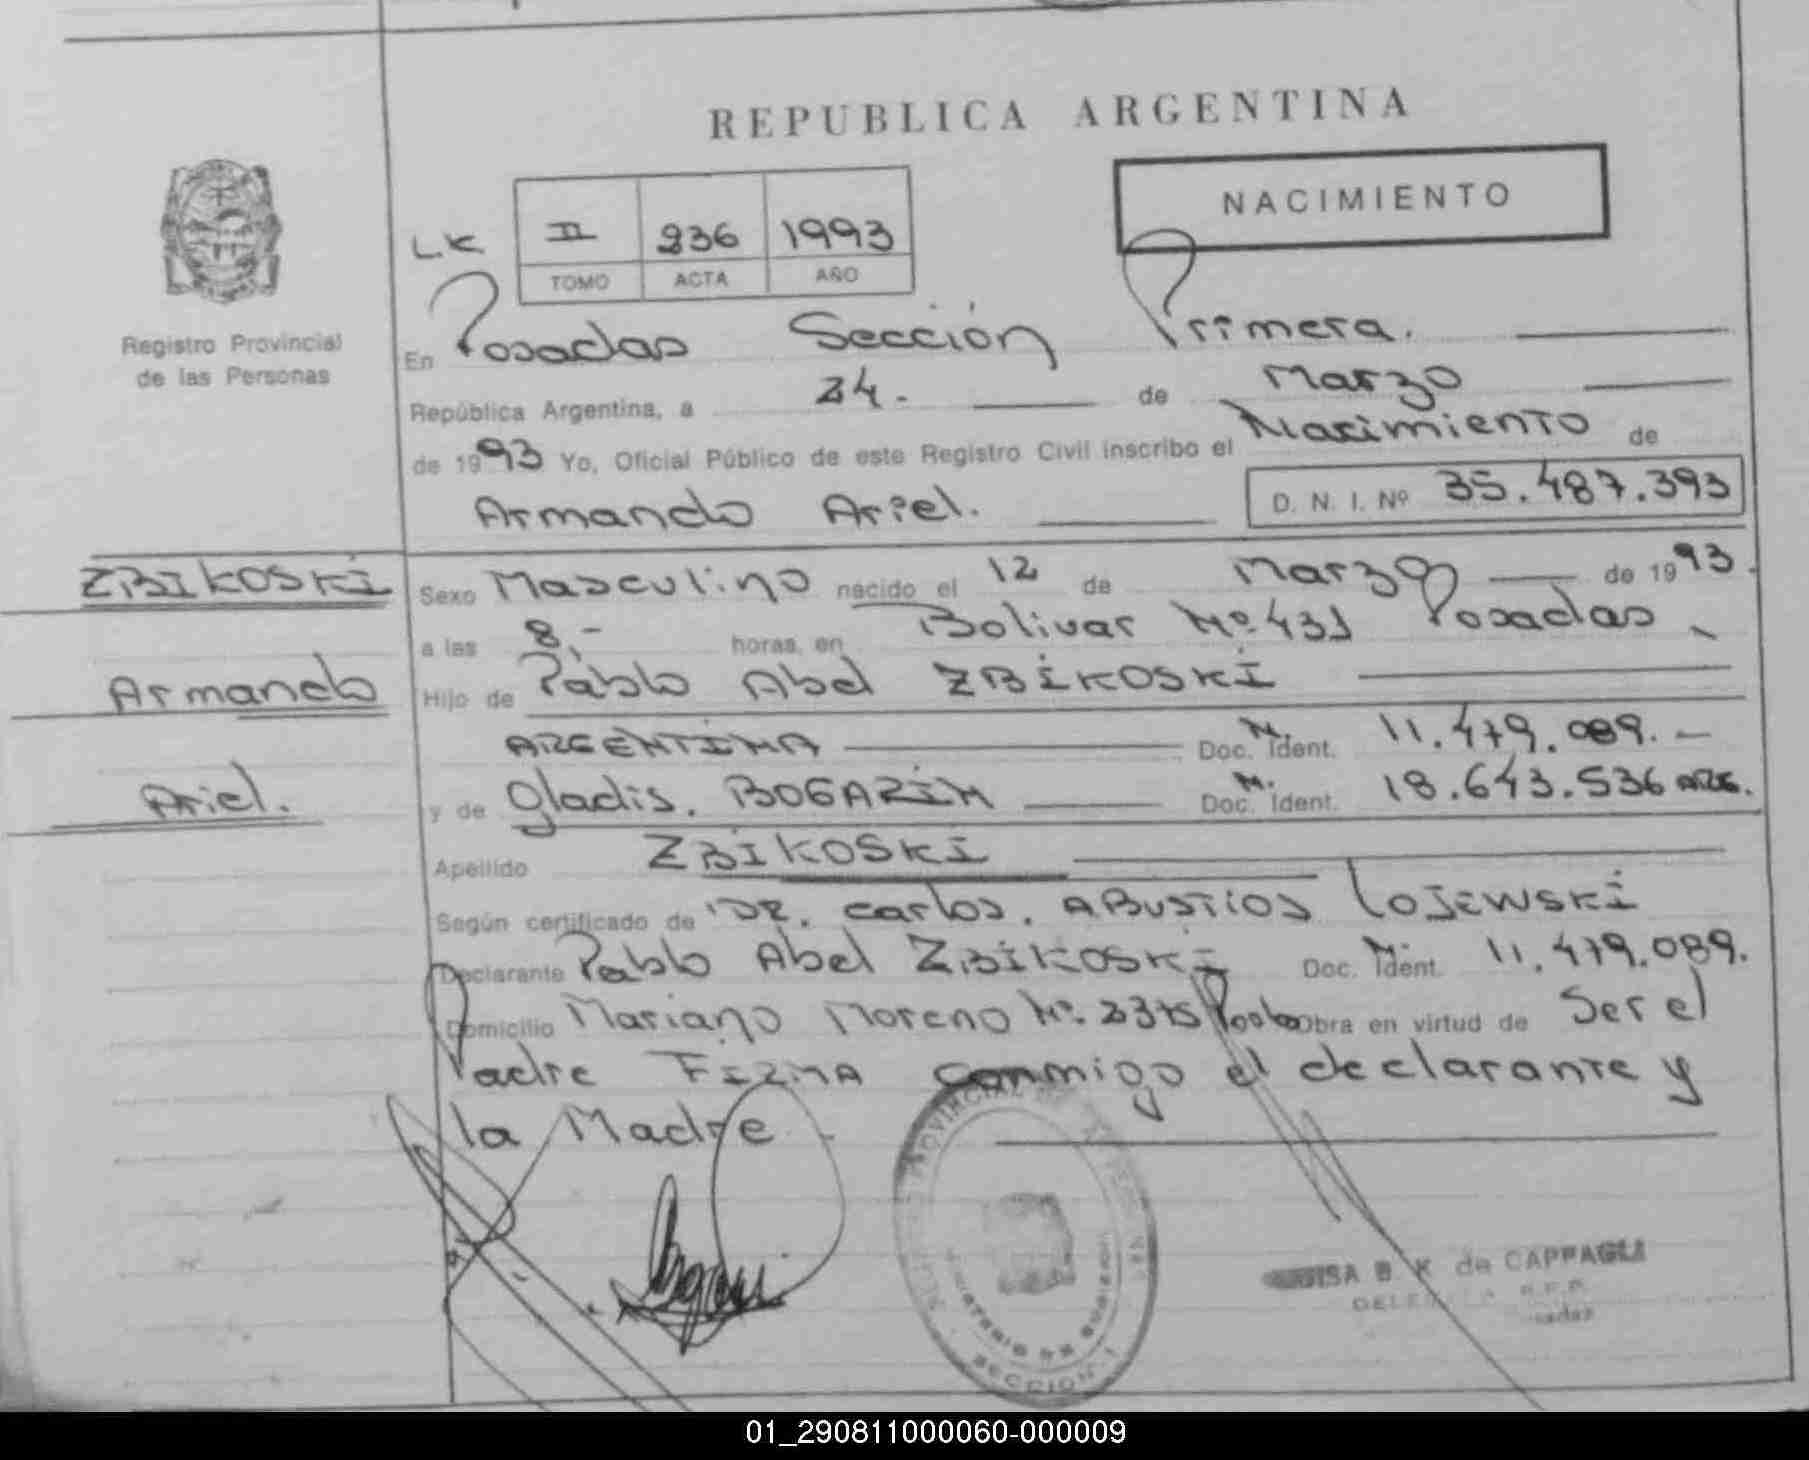 REPUBLICA ARGENTINA
NACIMIENTO
LK II 236 1993
TOMO ACTA AÑO
Registro Provincial
de las Personas
En Posadas Sección Primera.
República Argentina, a 24. de Marzo
de 1993 Yo, Oficial Público de este Registro Civil inscribo el Nacimiento de
Armando Ariel. D. N. I. Nº 35.487.393
ZBIKOSKI
Armando
Ariel.
Sexo Masculino nacido el 12 de Marzo de 1993.
a las 8,- horas, en Bolivar Nº 431 Posadas
Hijo de Pablo Abel ZBIKOSKI
ARGENTINA Doc. Ident. M. 11.479.089.-
y de Gladis. BOGARIN Doc. Ident. M. 18.643.536 ARG.
Apellido ZBIKOSKI
Según certificado de DR. Carlos. ABUSTIOS LOJEWSKI
Declarante Pablo Abel ZBIKOSKI Doc. Ident. M. 11.479.089.
Domicilio Mariano Moreno Nº. 2375 Obra en virtud de Ser el
Padre FIRMA conmigo el declarante y
la Madre.
SECCION 1
B. K. de CAPPAGLI
01_290811000060-000009